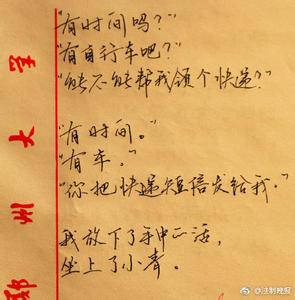 "有时间吗?"
"有自行车吧?"
"能不能帮我领个快递?"
"有时间。"
"有车。"
"你把快递短信发给我。"
我放下了手中的活,
坐上了小青。
学
大
州
@法制晚报